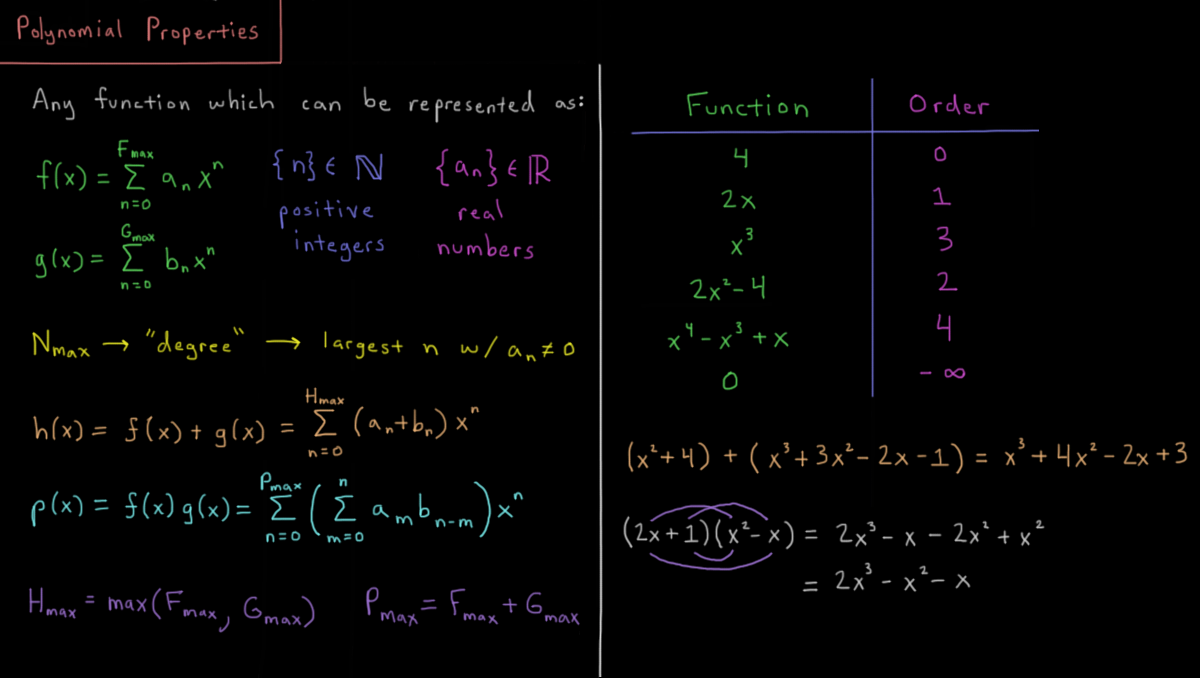 Polynomial Properties
Any function which can be represented as:
f(x) = Σ_{n=0}^{Fmax} aₙxⁿ {n} ∈ ℕ {aₙ} ∈ ℝ
positive integers real numbers
g(x) = Σ_{n=0}^{Gmax} bₙxⁿ
Nmax → "degree" → largest n w/ aₙ ≠ 0
h(x) = f(x) + g(x) = Σ_{n=0}^{Hmax} (aₙ+bₙ) xⁿ
p(x) = f(x) g(x) = Σ_{n=0}^{Pmax} (Σ_{m=0}^{n} a_m b_{n-m}) xⁿ
Hmax = max(Fmax, Gmax) Pmax = Fmax + Gmax
Function Order
4 0
2x 1
x³ 3
2x²-4 2
x⁴-x³+x 4
0 -∞
(x²+4) + (x³+3x²-2x-1) = x³+4x²-2x+3
(2x+1)(x²-x) = 2x³-x-2x²+x²
= 2x³-x²-x